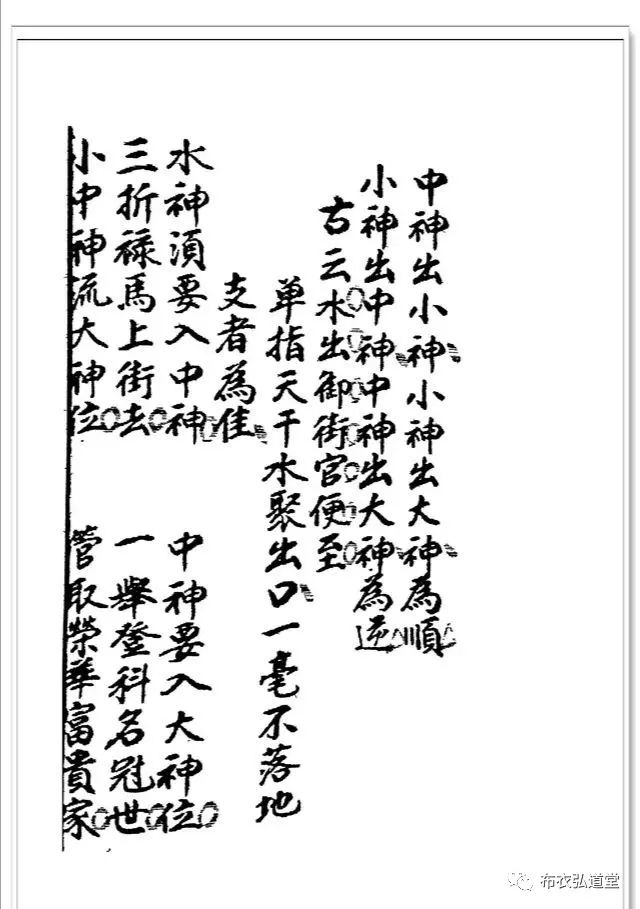 中神出小神小神出大神為順
小神出中神中神出大神為逆
古云水出御街官便至
单指天干水聚出口一毫不落地
支者為佳
水神須要入中神　中神要入大神位
三折祿馬上街去　一舉登科名冠世
小中神流大神位　管取榮華富貴家
布衣弘道堂